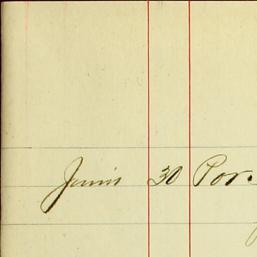 Junio 30 Por.